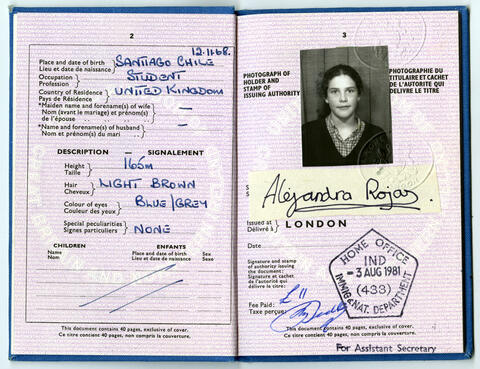 2
12.11.68.
Place and date of birth } SANTIAGO CHILE
Lieu et date de naissance
Occupation } STUDENT
Profession
Country of Residence } UNITED KINGDOM
Pays de Résidence
*Maiden name and forename(s) of wife
Nom (avant le mariage) et prénom(s) } —
de l'épouse
*Name and forename(s) of husband } —
Nom et prénom(s) du mari
DESCRIPTION — SIGNALEMENT
Height } 165m
Taille
Hair } LIGHT BROWN
Cheveux
Colour of eyes } BLUE/GREY
Couleur des yeux
Special peculiarities } NONE
Signes particuliers
CHILDREN ENFANTS
Name Place and date of birth Sex
Nom Lieu et date de naissance Sexe
This document contains 40 pages, exclusive of cover.
Ce titre contient 40 pages, non compris la couverture.
3
PHOTOGRAPH OF
HOLDER AND
STAMP OF
ISSUING AUTHORITY
PHOTOGRAPHIE DU
TITULAIRE ET CACHET
DE L'AUTORITE QUI
DÉLIVRE LE TITRE
S
S
Alejandra Rojas.
Issued at } LONDON
Délivré à
Date
Signature and stamp
of authority issuing
the document:
Signature et cachet
de l'autorité qui
délivre le titre:
HOME OFFICE
IND
-3 AUG 1981
(433)
IMMIG & NAT. DEPARTMENT
Fee Paid: } £11
Taxe perçue:
This document contains 40 pages, exclusive of cover.
Ce titre contient 40 pages, non compris la couverture.
For Assistant Secretary